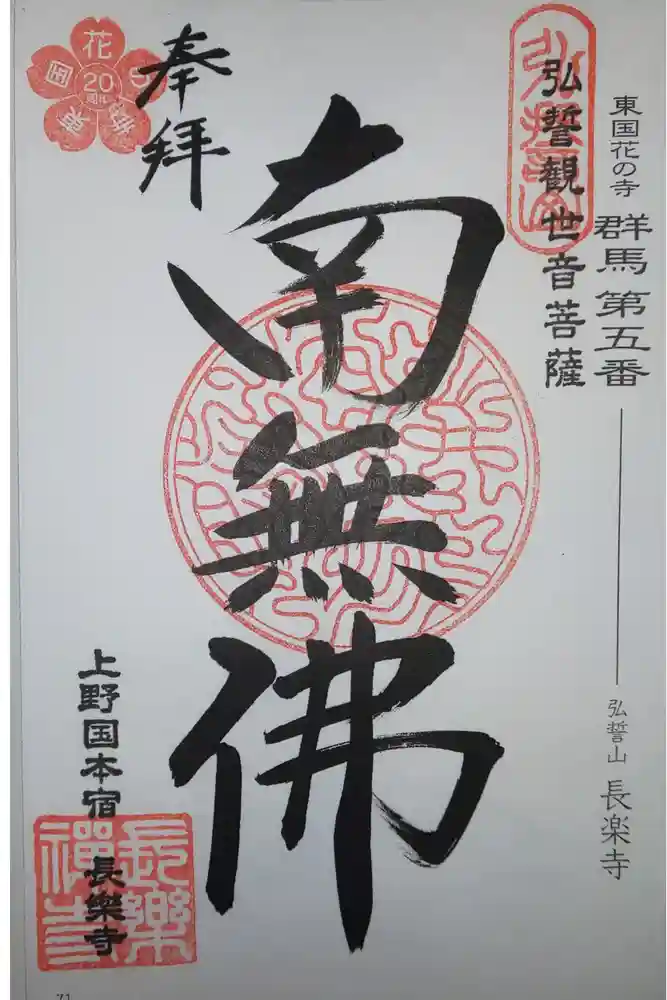 東国花の寺 群馬第五番 弘誓山 長楽寺
弘誓観世音菩薩
南無佛
奉拝
花
20
上野国本宿 長樂寺
長樂禅寺
71